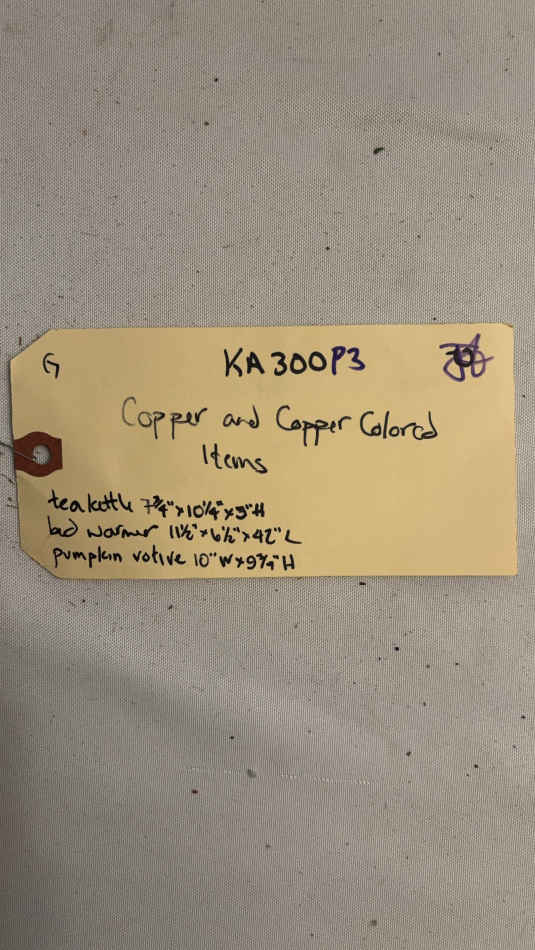 G KA300P3
Copper and Copper Colored
Items
teakettle 7¾" x 10¼" x 5"H
bed warmer 11½" x 6½" x 42" L
pumpkin votive 10" W x 9¾" H